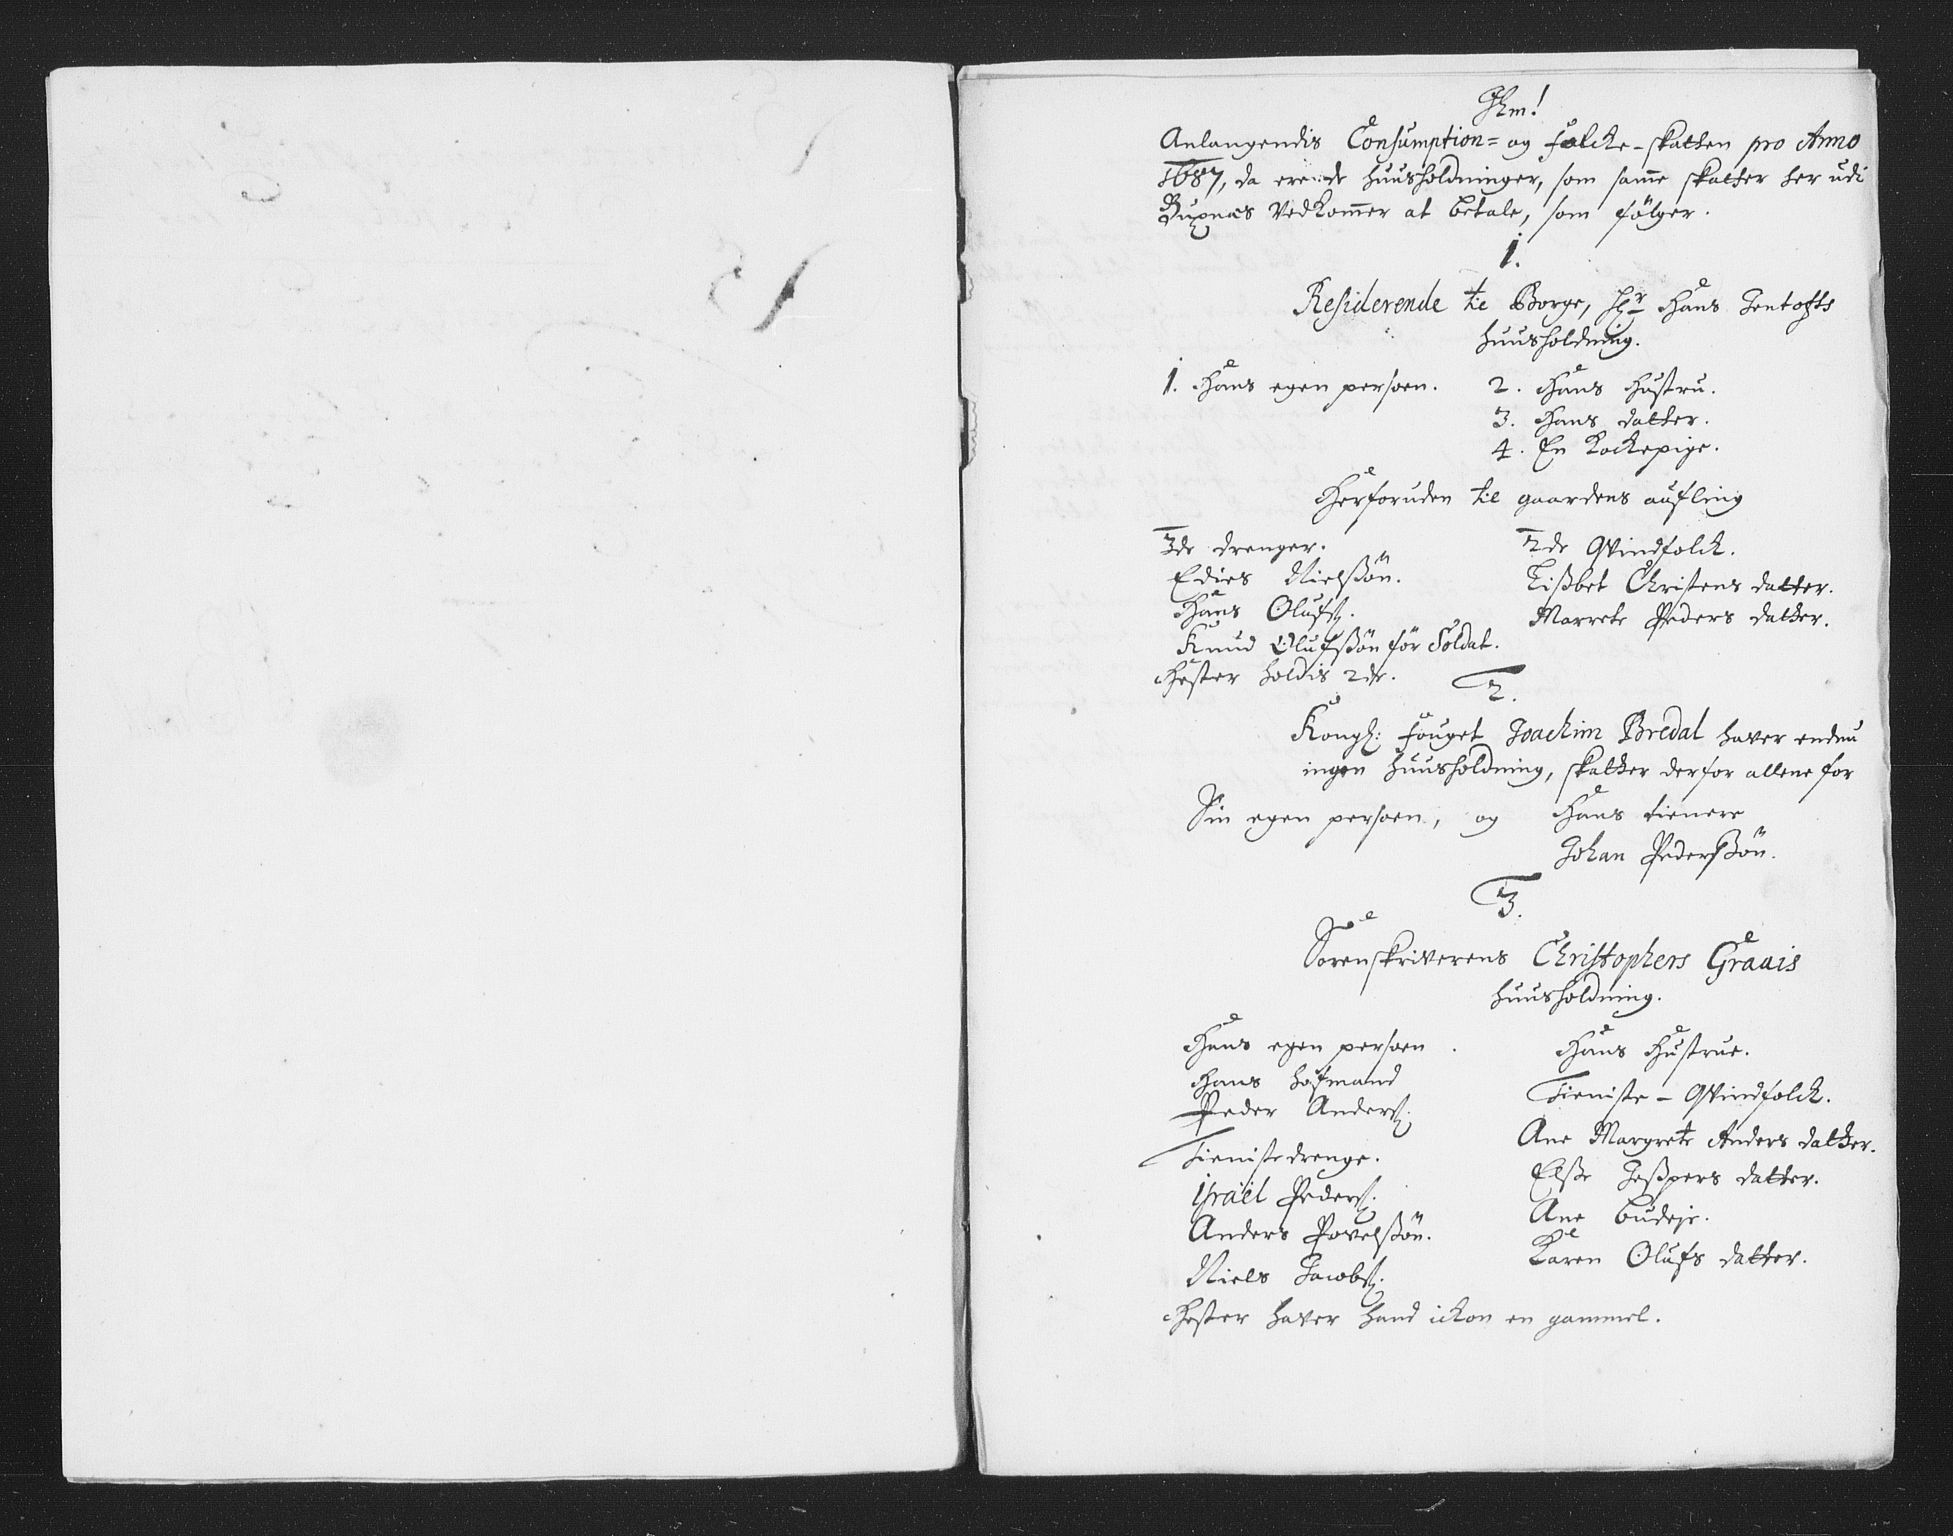 Ihm!
Anlangendis Consumption= og Folcke-skatten pro Anno
1687, da ere de huusholdninger, som same skatter her udi
Buxnæs vedkomer at betale, som følger.
1.
Residerende til Borge, Hr Hans Jentofts
huusholdning.
1. Hans egen persoen. 2. Hans Hustru.
3. Hans datter.
4. En Kockepige.
Herforuden til gaardens aufling
3de drenger. 2de Qvindfolck.
Edies Nielssøn. Lissbet Christens datter.
Hans Olufs. Marrete Peders datter.
Knud Olufssøn før Soldat.
Hester holdis 2de.
2.
Kongl: Fouget Joachim Bredal haver endnu
ingen huusholdning, skatter derfor allene for
Sin egen persoen, og Hans tienere
Johan Pederssøn.
3.
Sorenskriverens Christophers Graais
huusholdning.
Hans egen persoen. Hans Hustrue.
Hans hofmand Tieniste-Qvindfolck.
Peder Anders. Ane Margrete Anders datter.
Tienistedrenge. Elsse Jesspers datter.
Israël Peders. Ane budeje.
Anders Povelssøn. Karen Olufs datter.
Niels Jacobs.
Hester haver hand ickon en gammel.